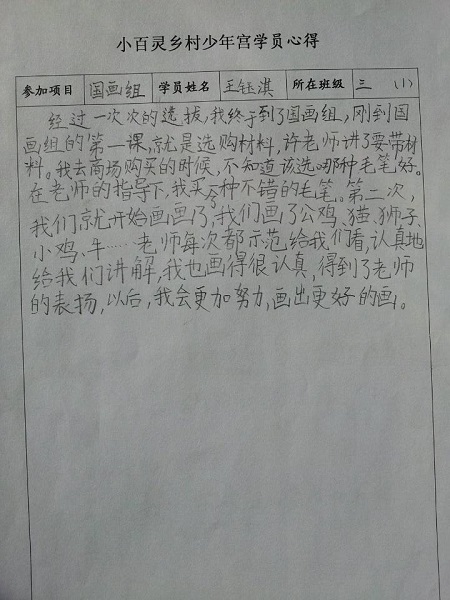 小百灵乡村少年宫学员心得
参加项目 国画组 学员姓名 王钰淇 所在班级 三 (1)
经过一次次的选拔,我终于到了国画组,刚到国
画组的第一课,就是选购材料,许老师讲了要带材
料。我去商场购买的时候,不知道该选哪种毛笔好。
在老师的指导下,我买了一种不错的毛笔。第二次,
我们就开始画画了,我们画了公鸡、猫、狮子、
小鸡、牛……老师每次都示范给我们看,认真地
给我们讲解,我也画得很认真,得到了老师
的表扬,以后,我会更加努力,画出更好的画。